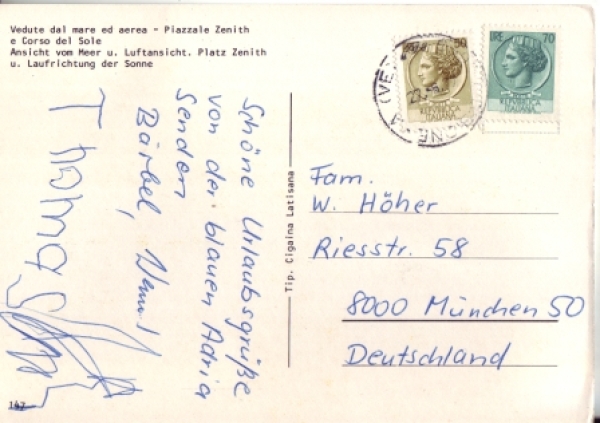 Vedute dal mare ed aerea - Piazzale Zenith
e Corso del Sole
Ansicht vom Meer u. Luftansicht. Platz Zenith
u. Laufrichtung der Sonne
Schöne Urlaubsgrüße
von der blauen Adria
Senden
Bärbel,
Thomas
Tip. Cigaina Latisana
50
LIRE 70
REPVBBLICA
ITALIANA
REPVBBLICA
ITALIANA
Fam.
W. Höher
Riesstr. 58
8000 München 50
Deutschland
147